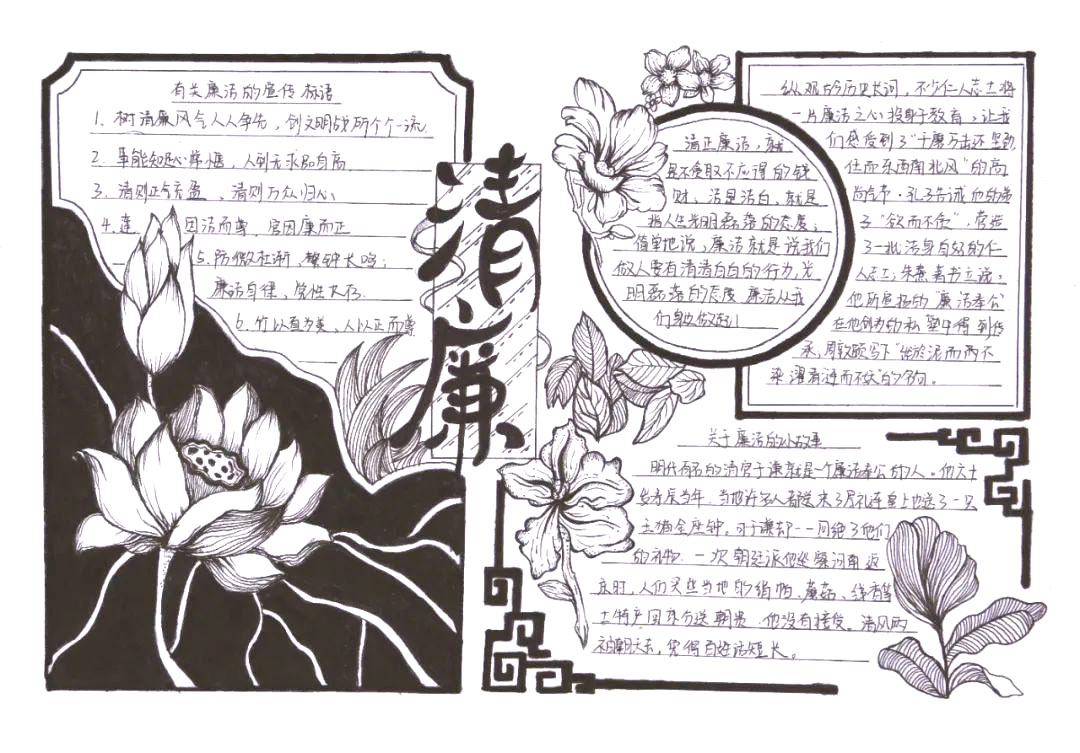 有关廉洁的宣传标语
1. 树清廉风气人人争先，创文明战所个个一流.
2. 事能知足心常惬，人到无求品自高
3. 清则正气充盈、清则万众归心
4. 莲因洁而尊，官因廉而正
5. 防微杜渐，警钟长鸣；
廉洁自律，党性大存.
6. 竹以直为美，人以正而尊
清廉
清正廉洁，就
是不受取不应得的钱
财、洁是洁白，就是
指人生光明磊落的态度；
简单地说，廉洁就是说我们
做人要有清清白白的行为，光
明磊落的态度 廉洁从我
们身边做起！
纵观的历史长河，不少仁人志士将
一片廉洁之心投身于教育，让我
们感受到了"千磨万击还坚劲
任而东西南北风"的高
尚令节·孔子告诫他的弟
子"欲而不贪"，
了一批洁身自好的仁
人志士；朱熹著书立说，
他所
廉洁奉公
在他创办的私塾中得到传
承，周敦颐写下"出淤泥而而不
染濯清涟而不妖"的名句。
关于廉洁的小故事
明代有名的清官于谦就是一个廉洁奉公的人。他六十
岁寿辰当年，当地许多人都送来了厚礼连皇上也送了一只
玉猫金座钟。可于谦却一一回绝了他们
的礼物. 一次朝廷派他巡察河南返
京时，人们买些当地的绢帕、蘑菇、线香等
土特产回京分送朝贵 他没有接受。清风两
袖朝天去，免得百姓话短长。